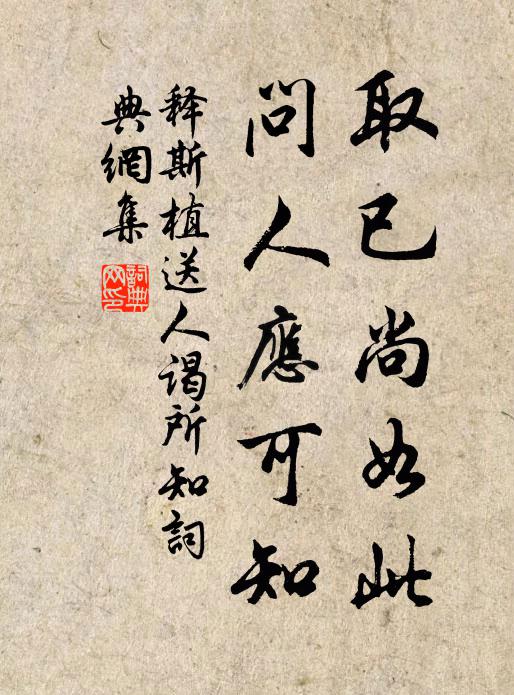 取已尚如此
問人應可知
释斯植送人谒所知詞
典網集
詞典網印